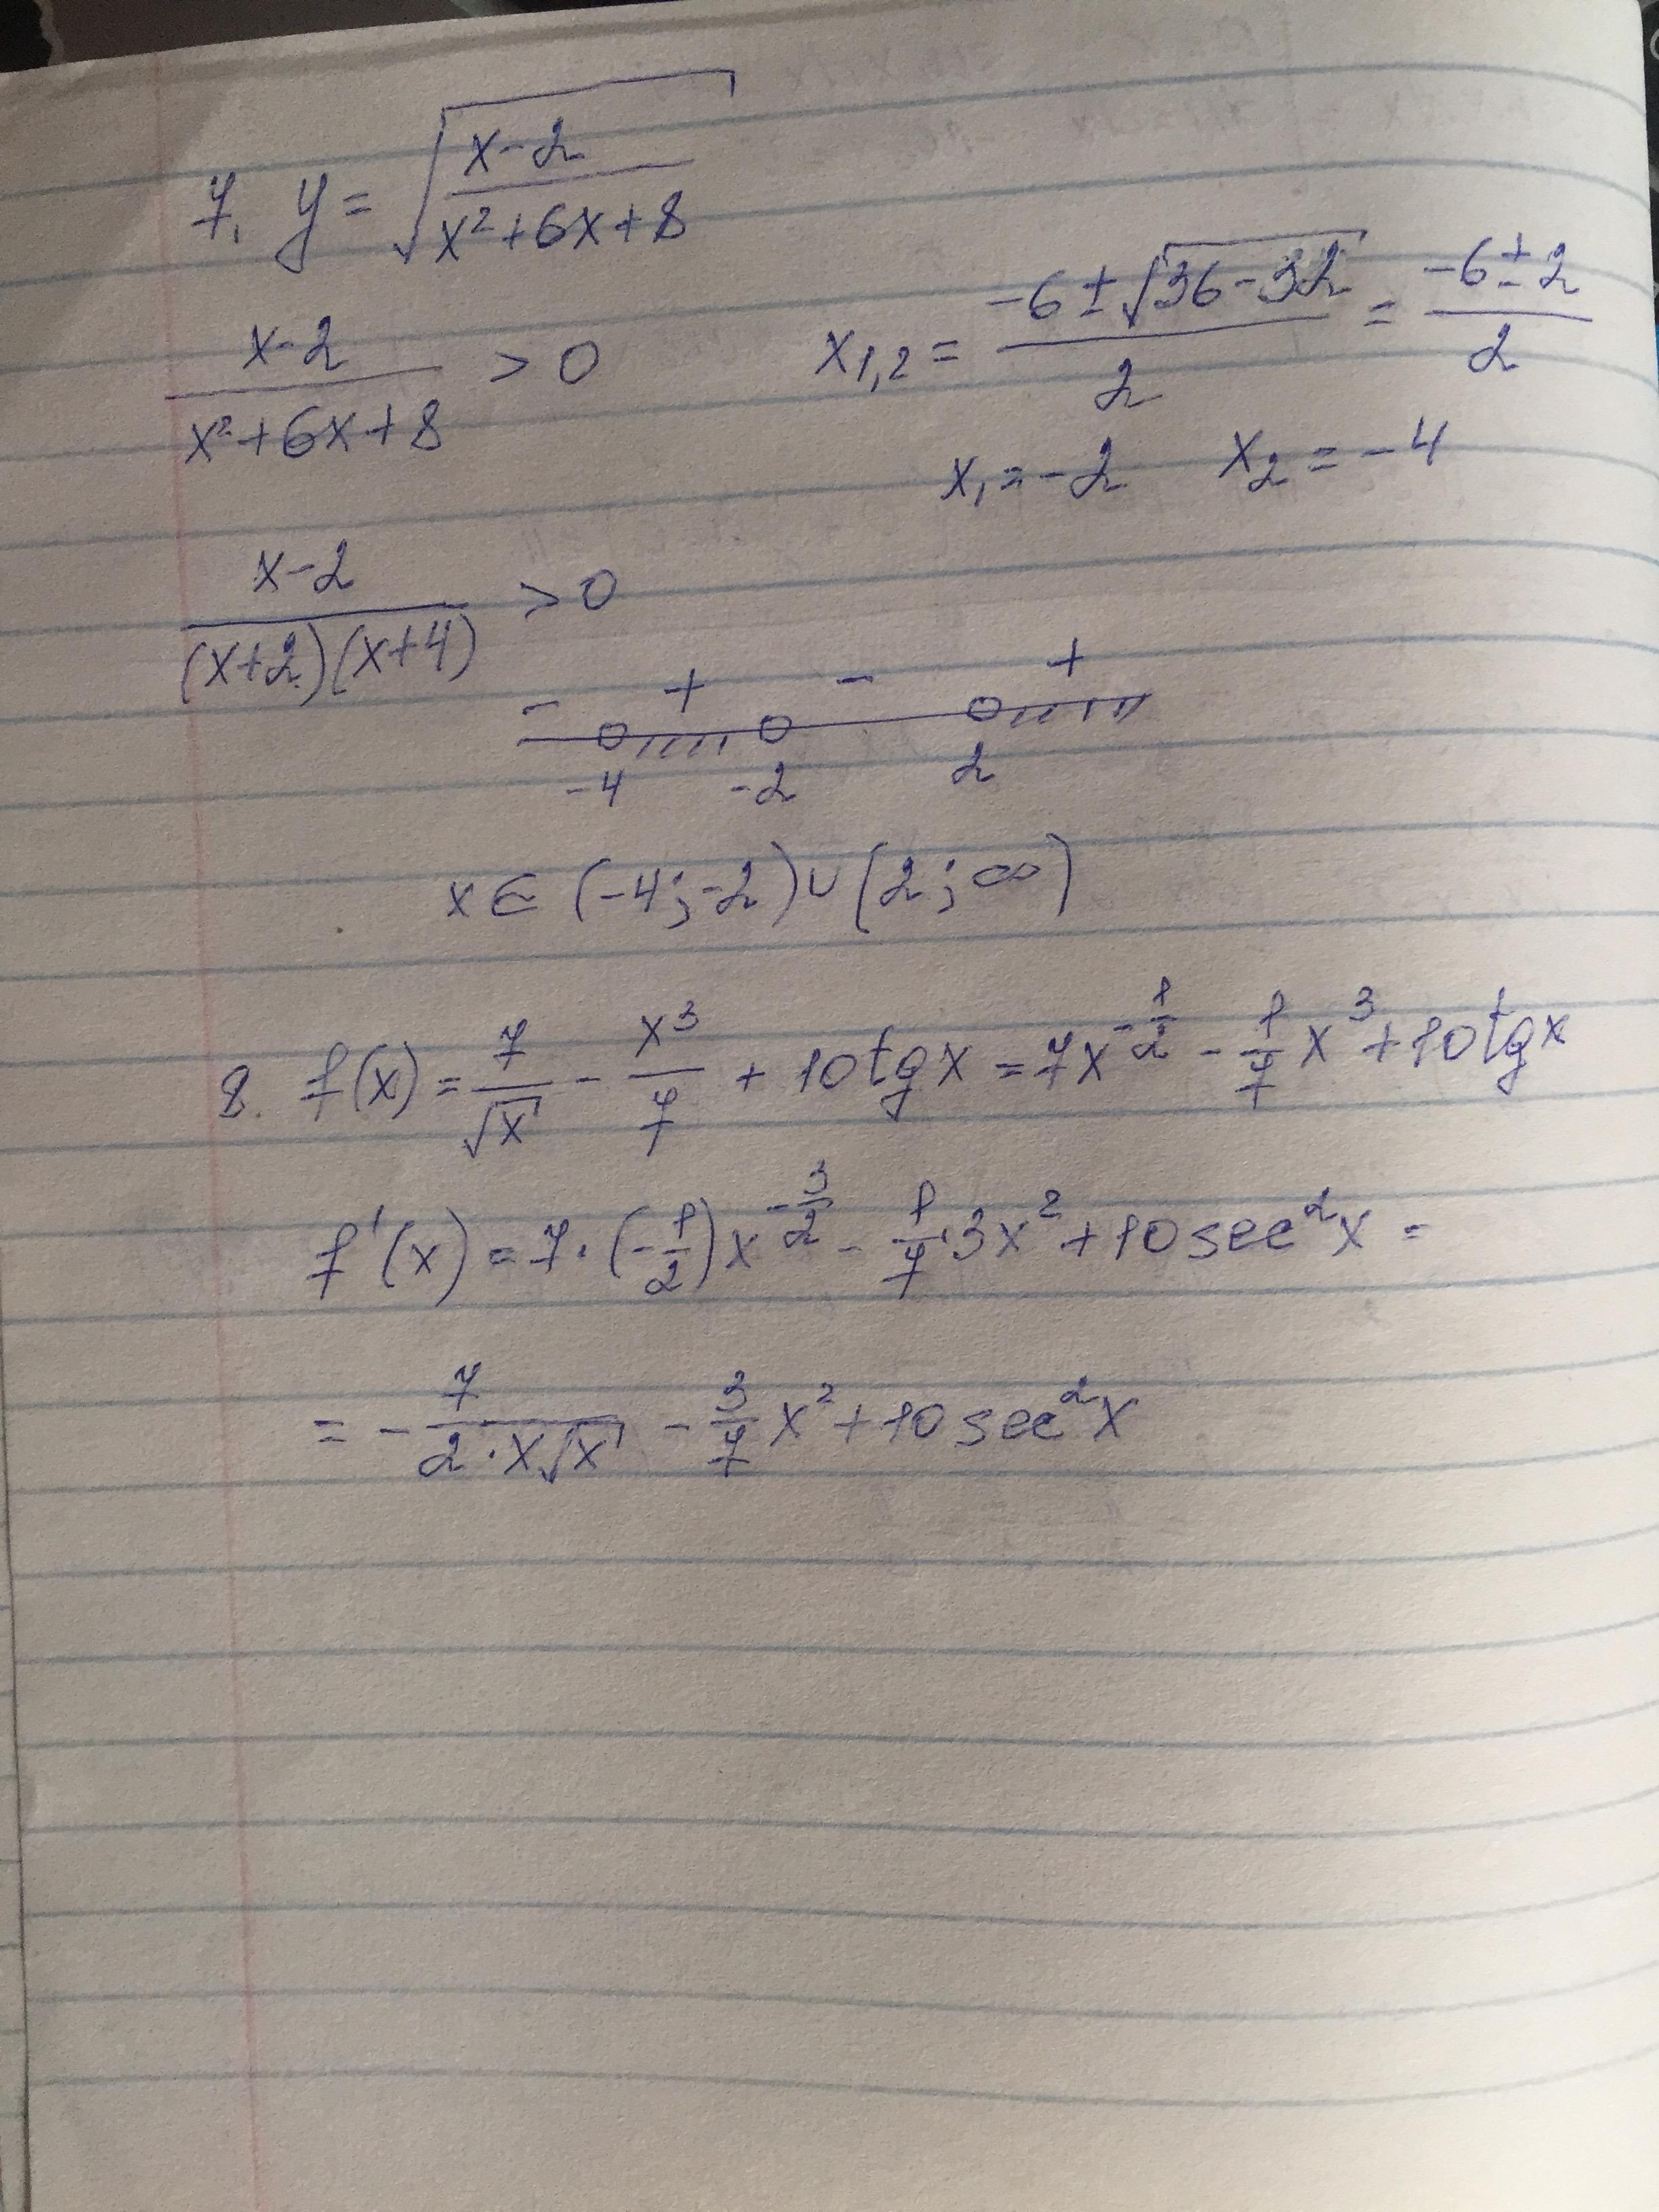 7. y = √((x-2)/(x²+6x+8))
(x-2)/(x²+6x+8) > 0
x₁,₂ = (-6±√(36-32))/2 = (-6±2)/2
x₁ = -2 x₂ = -4
(x-2)/((x+2)(x+4)) > 0
- + - +
-4 -2 2
x ∈ (-4; -2) ∪ (2; ∞)
8. f(x) = 7/√x - x³/7 + 10tgx = 7x^(-1/2) - 1/7 x³ + 10tgx
f'(x) = 7·(-1/2)x^(-3/2) - 1/7·3x² + 10sec²x =
= -7/(2·x√x) - 3/7 x² + 10sec²x